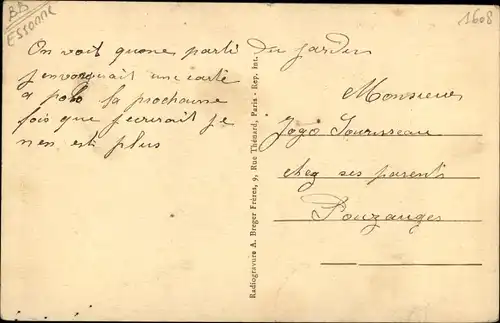 BB
ESSONNE
1608
On voit quone parti du jardin
j envorquait une carte
a poto la prochaine
fois que jecrirait je
nen est plus
Radiogravure A. Breger Frères, 9, Rue Thénard, Paris - Rep. Int.
Monsieur
Jogo Sourisseau
cheg ses parents
Pouzauges